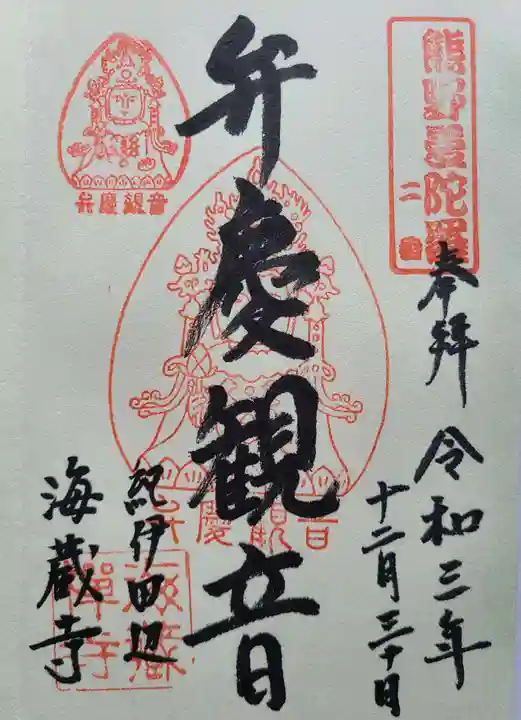 熊野曼陀羅
二番
奉拝
令和三年
十二月三十日
弁慶観音
弁慶観音
弁慶観音
紀伊田辺
海蔵寺
海蔵禅寺